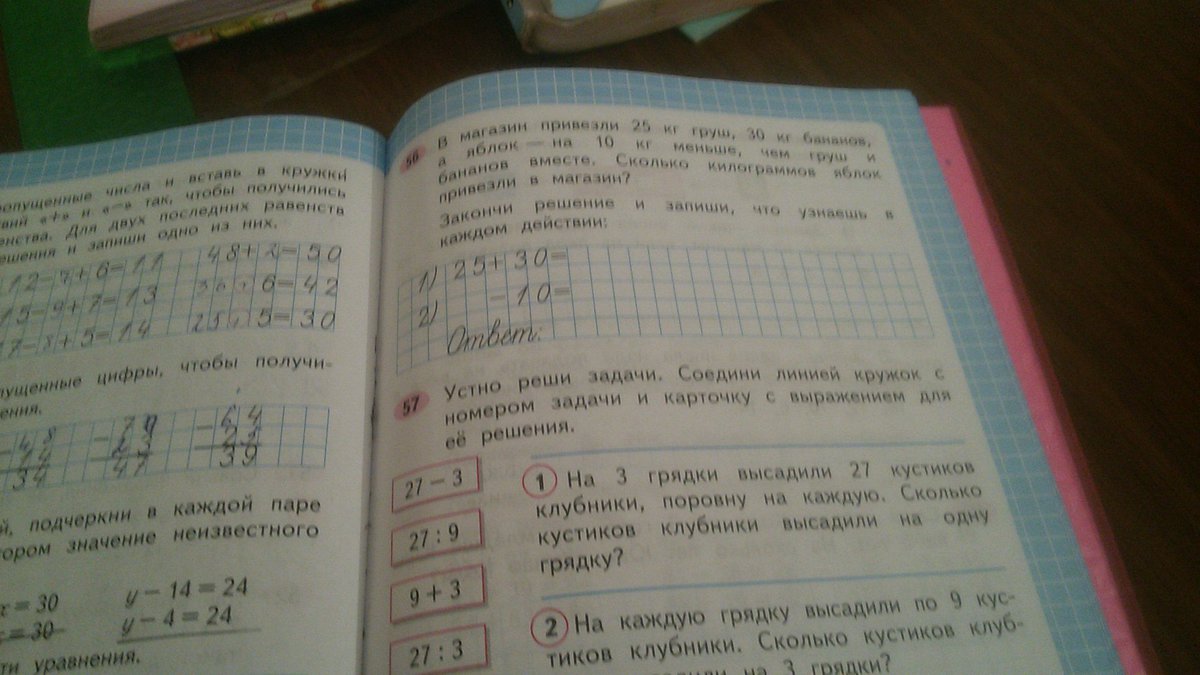 ропущенные числа и вставь в кружки
«+» и «−» так, чтобы получились
енства. Для двух последних равенств
ешения и запиши одно из них.
12-7+6=11
48+2=50
15-9+7=13
6=42
17-8+5=14
25 5=30
пущенные цифры, чтобы получи-
ения.
64
39
й, подчеркни в каждой паре
тором значение неизвестного
x = 30
y − 14 = 24
= 30
y − 4 = 24
ти уравнения.
56 В магазин привезли 25 кг груш, 30 кг бананов,
а яблок — на 10 кг меньше, чем груш и
бананов вместе. Сколько килограммов яблок
привезли в магазин?
Закончи решение и запиши, что узнаешь в
каждом действии:
1) 25+30=
2) -10=
Ответ:
57 Устно реши задачи. Соедини линией кружок с
номером задачи и карточку с выражением для
её решения.
27 − 3
27 : 9
9 + 3
27 : 3
1 На 3 грядки высадили 27 кустиков
клубники, поровну на каждую. Сколько
кустиков клубники высадили на одну
грядку?
2 На каждую грядку высадили по 9 кус-
тиков клубники. Сколько кустиков клуб-
на 3 грядки?